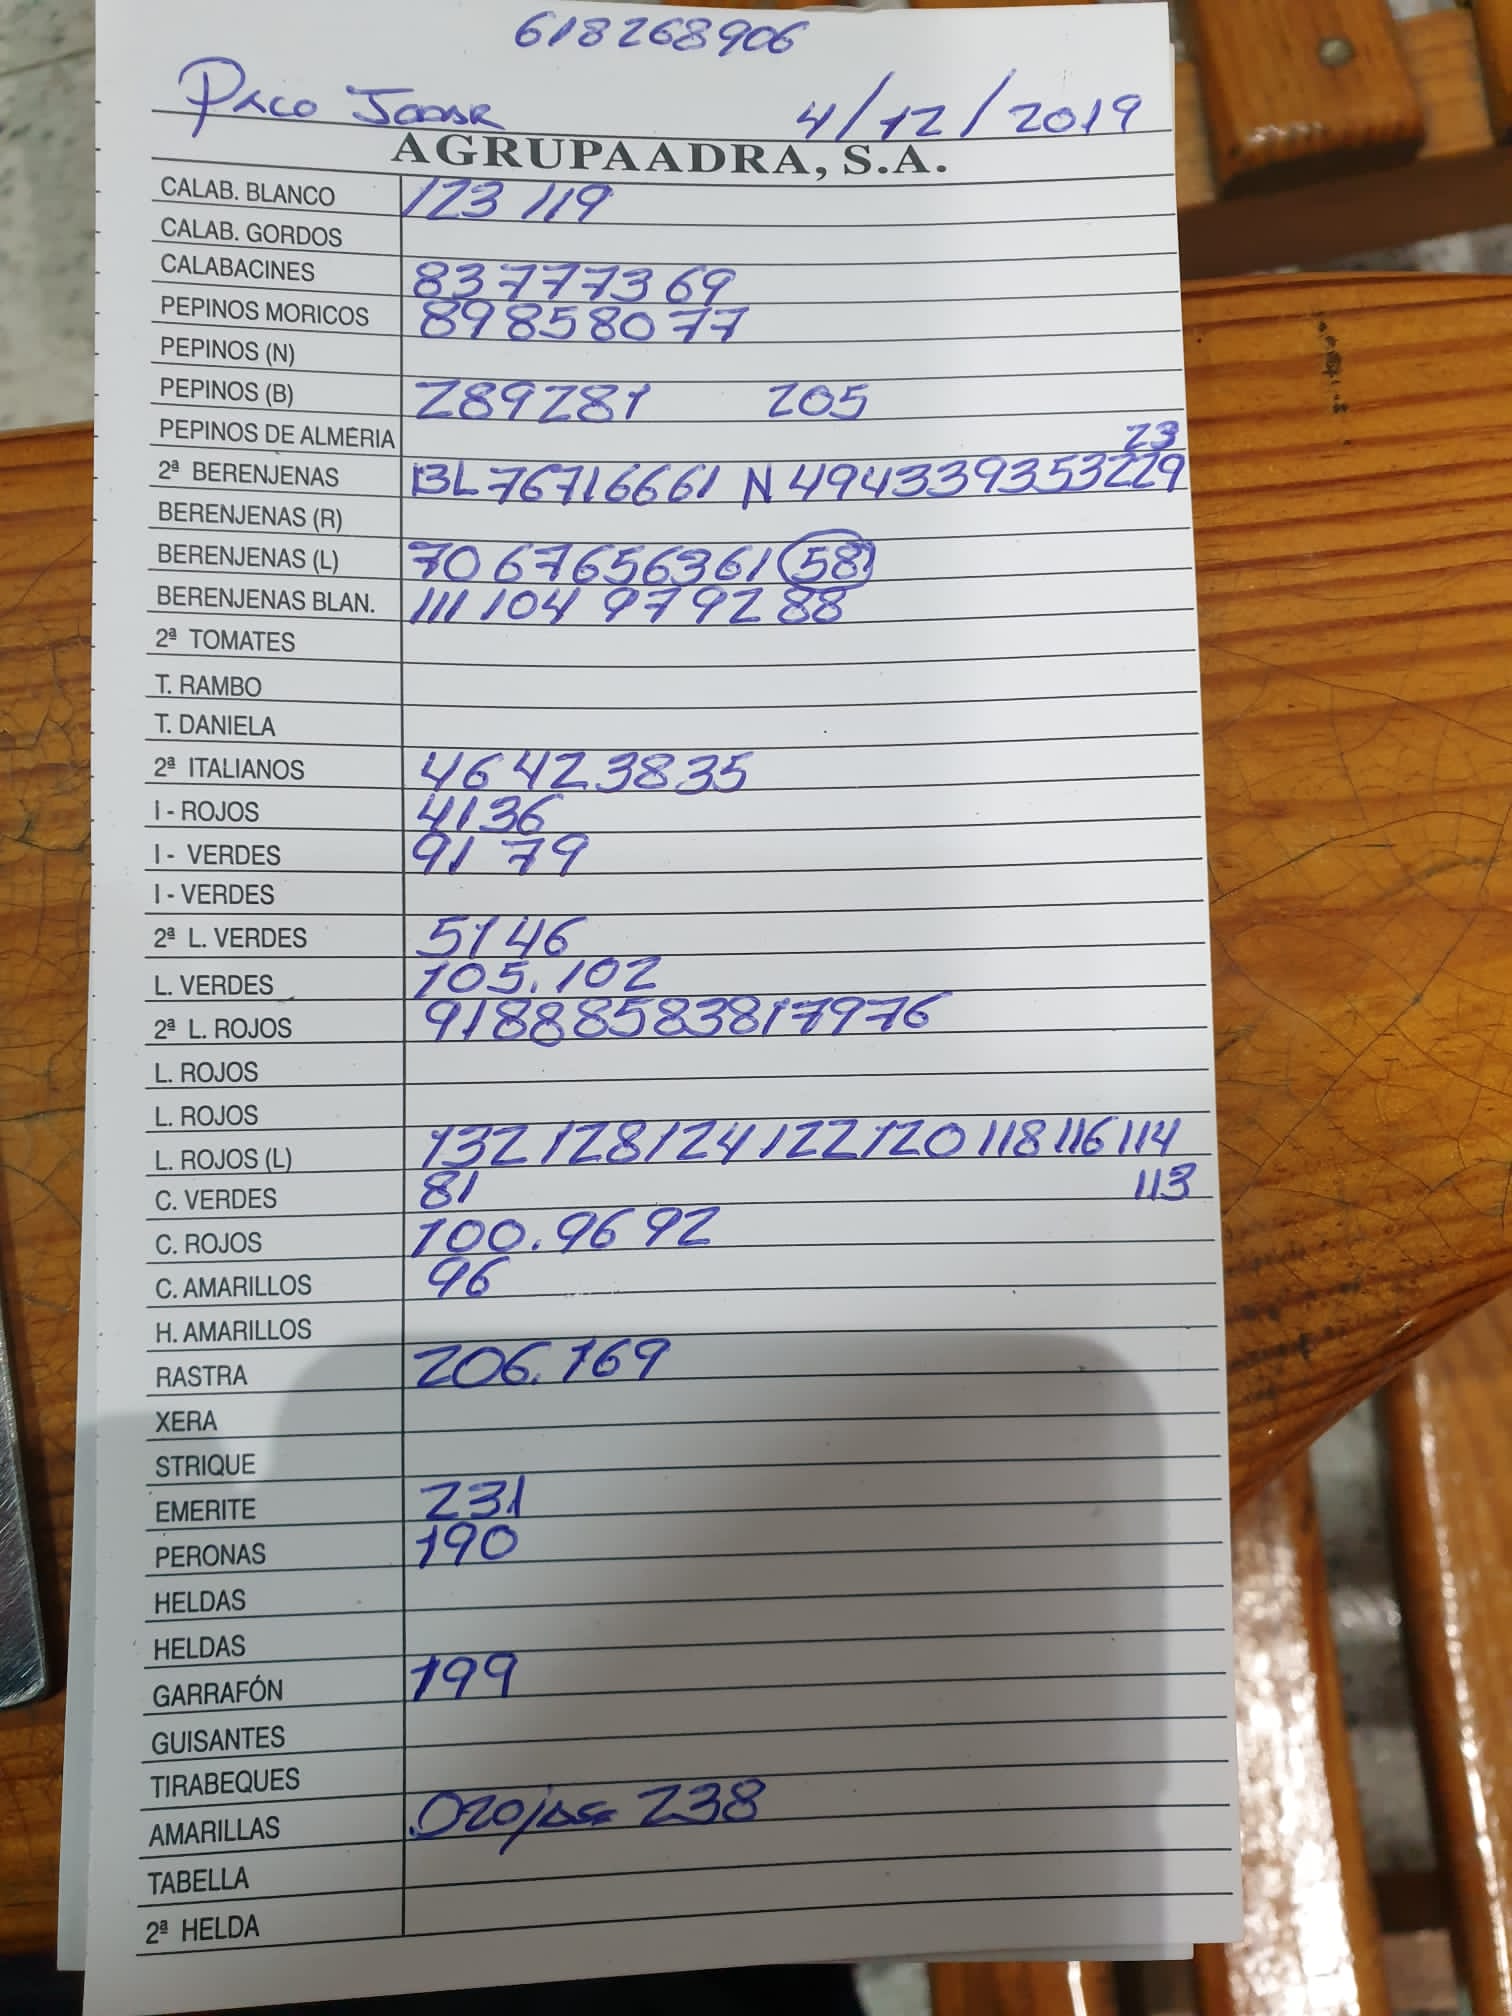 618268906
PACO JODAR 4/12/2019
AGRUPAADRA, S.A.
CALAB. BLANCO 123 119
CALAB. GORDOS
CALABACINES 83 77 73 69
PEPINOS MORICOS 89 85 80 77
PEPINOS (N)
PEPINOS (B) 289 281 205
PEPINOS DE ALMERIA 23
2ª BERENJENAS BL 76 71 66 61 N 49 43 39 35 32 29
BERENJENAS (R)
BERENJENAS (L) 70 67 65 63 61 58
BERENJENAS BLAN. 111 104 97 92 88
2ª TOMATES
T. RAMBO
T. DANIELA
2ª ITALIANOS 46 42 38 35
I - ROJOS 41 36
I - VERDES 91 79
I - VERDES
2ª L. VERDES 51 46
L. VERDES 105. 102
2ª L. ROJOS 91 88 85 83 81 79 76
L. ROJOS
L. ROJOS
L. ROJOS (L) 132 128 124 122 120 118 116 114
C. VERDES 81 113
C. ROJOS 100. 96 92
C. AMARILLOS 96
H. AMARILLOS
RASTRA 206. 169
XERA
STRIQUE
EMERITE 231
PERONAS 190
HELDAS
HELDAS
GARRAFÓN 199
GUISANTES
TIRABEQUES
AMARILLAS 238
TABELLA
2ª HELDA